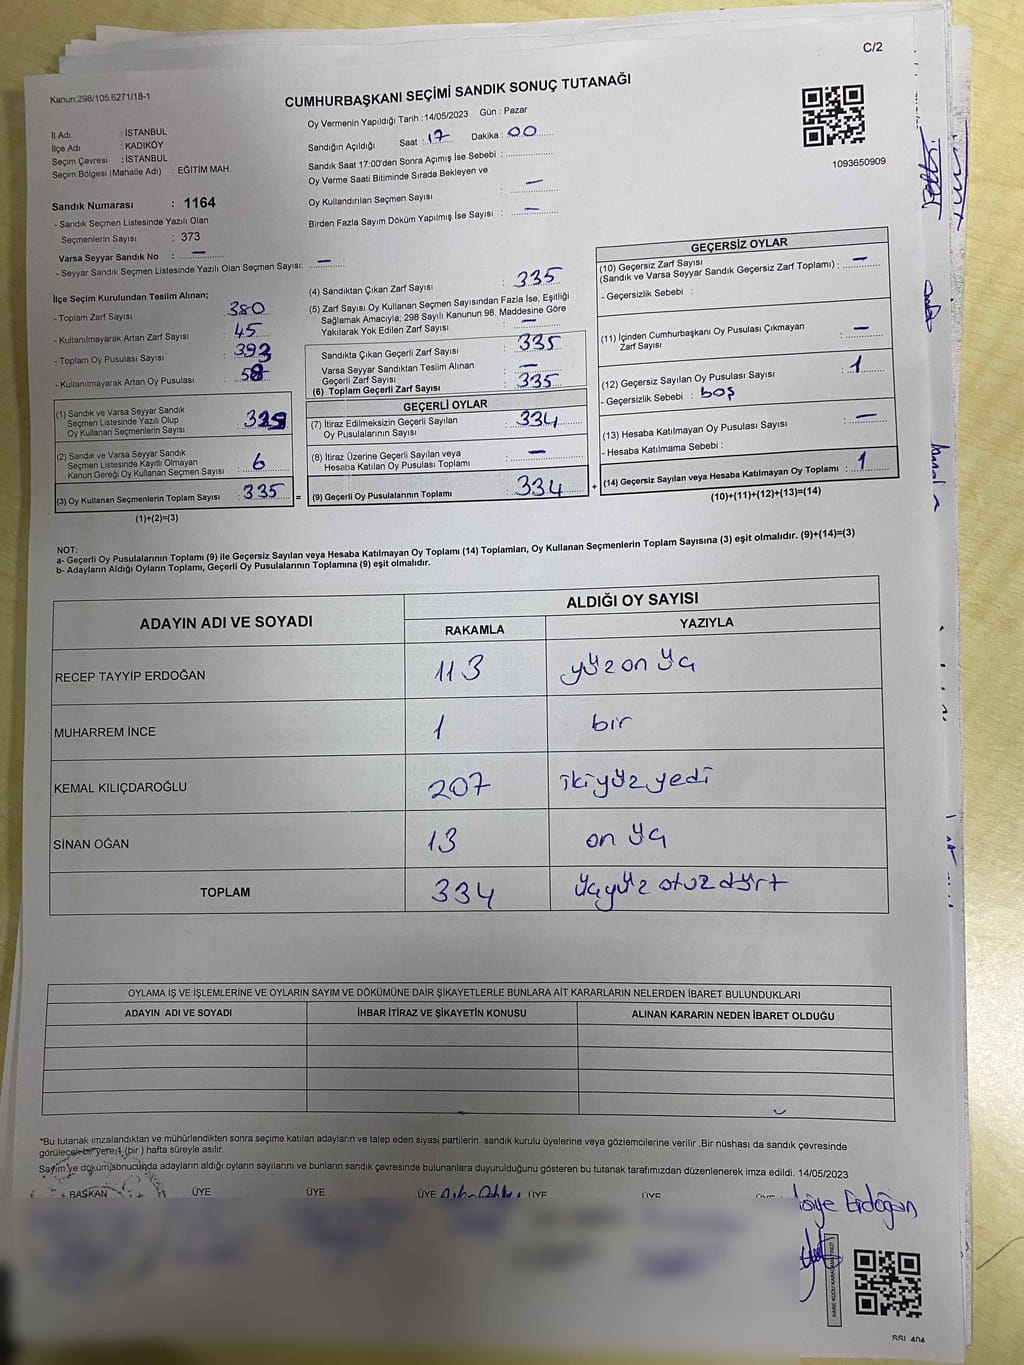 C/2
Kanun:298/105.6271/18-1
CUMHURBAŞKANI SEÇİMİ SANDIK SONUÇ TUTANAĞI
İl Adı : İSTANBUL
İlçe Adı : KADIKÖY
Seçim Çevresi : İSTANBUL
Seçim Bölgesi (Mahalle Adı) : EĞİTİM MAH.
Oy Vermenin Yapıldığı Tarih :14/05/2023 Gün : Pazar
Sandığın Açıldığı Saat : 17 Dakika : 00
Sandık Saat 17:00'den Sonra Açımış İse Sebebi :
Oy Verme Saati Bitiminde Sırada Bekleyen ve
Oy Kullandırılan Seçmen Sayısı : —
Birden Fazla Sayım Döküm Yapılmış İse Sayısı : —
1093650909
Sandık Numarası : 1164
- Sandık Seçmen Listesinde Yazılı Olan
Seçmenlerin Sayısı : 373
Varsa Seyyar Sandık No : —
- Seyyar Sandık Seçmen Listesinde Yazılı Olan Seçmen Sayısı: —
İlçe Seçim Kurulundan Teslim Alınan;
- Toplam Zarf Sayısı : 380
- Kullanılmayarak Artan Zarf Sayısı : 45
- Toplam Oy Pusulası Sayısı : 393
- Kullanılmayarak Artan Oy Pusulası : 58
(1) Sandık ve Varsa Seyyar Sandık
Seçmen Listesinde Yazılı Olup
Oy Kullanan Seçmenlerin Sayısı : 329
(2) Sandık ve Varsa Seyyar Sandık
Seçmen Listesinde Kayıtlı Olmayan
Kanun Gereği Oy Kullanan Seçmen Sayısı : 6
(3) Oy Kullanan Seçmenlerin Toplam Sayısı : 335 =
(1)+(2)=(3)
(4) Sandıktan Çıkan Zarf Sayısı : 335
(5) Zarf Sayısı Oy Kullanan Seçmen Sayısından Fazla İse, Eşitliği
Sağlamak Amacıyla; 298 Sayılı Kanunun 98. Maddesine Göre
Yakılarak Yok Edilen Zarf Sayısı : —
Sandıkta Çıkan Geçerli Zarf Sayısı : 335
Varsa Seyyar Sandıktan Teslim Alınan
Geçerli Zarf Sayısı : —
(6) Toplam Geçerli Zarf Sayısı : 335
GEÇERLİ OYLAR
(7) İtiraz Edilmeksizin Geçerli Sayılan
Oy Pusulalarının Sayısı : 334
(8) İtiraz Üzerine Geçerli Sayılan veya
Hesaba Katılan Oy Pusulası Toplamı : —
(9) Geçerli Oy Pusulalarının Toplamı : 334 +
GEÇERSİZ OYLAR
(10) Geçersiz Zarf Sayısı
(Sandık ve Varsa Seyyar Sandık Geçersiz Zarf Toplamı) : —
- Geçersizlik Sebebi :
(11) İçinden Cumhurbaşkanı Oy Pusulası Çıkmayan
Zarf Sayısı : —
(12) Geçersiz Sayılan Oy Pusulası Sayısı : 1
- Geçersizlik Sebebi : boş
(13) Hesaba Katılmayan Oy Pusulası Sayısı : —
- Hesaba Katılmama Sebebi :
(14) Geçersiz Sayılan veya Hesaba Katılmayan Oy Toplamı : 1
(10)+(11)+(12)+(13)=(14)
NOT:
a- Geçerli Oy Pusulalarının Toplamı (9) ile Geçersiz Sayılan veya Hesaba Katılmayan Oy Toplamı (14) Toplamları, Oy Kullanan Seçmenlerin Toplam Sayısına (3) eşit olmalıdır. (9)+(14)=(3)
b- Adayların Aldığı Oyların Toplamı, Geçerli Oy Pusulalarının Toplamına (9) eşit olmalıdır.
ADAYIN ADI VE SOYADI ALDIĞI OY SAYISI
RAKAMLA YAZIYLA
RECEP TAYYİP ERDOĞAN 113 yüz on üç
MUHARREM İNCE 1 bir
KEMAL KILIÇDAROĞLU 207 ikiyüz yedi
SİNAN OĞAN 13 on üç
TOPLAM 334 üçyüz otuz dört
OYLAMA İŞ VE İŞLEMLERİNE VE OYLARIN SAYIM VE DÖKÜMÜNE DAİR ŞİKAYETLERLE BUNLARA AİT KARARLARIN NELERDEN İBARET BULUNDUKLARI
ADAYIN ADI VE SOYADI İHBAR İTİRAZ VE ŞİKAYETİN KONUSU ALINAN KARARIN NEDEN İBARET OLDUĞU
*Bu tutanak imzalandıktan ve mühürlendikten sonra seçime katılan adayların ve talep eden siyasi partilerin sandık kurulu üyelerine veya gözlemcilerine verilir .Bir nüshası da sandık çevresinde
görülecek bir yere 1 (bir ) hafta süreyle asılır.
Sayım ve döküm sonucunda adayların aldığı oyların sayılarını ve bunların sandık çevresinde bulunanlara duyurulduğunu gösteren bu tutanak tarafımızdan düzenlenerek imza edildi. 14/05/2023
BAŞKAN ÜYE ÜYE ÜYE ÜYE ÜYE
Erdoğan